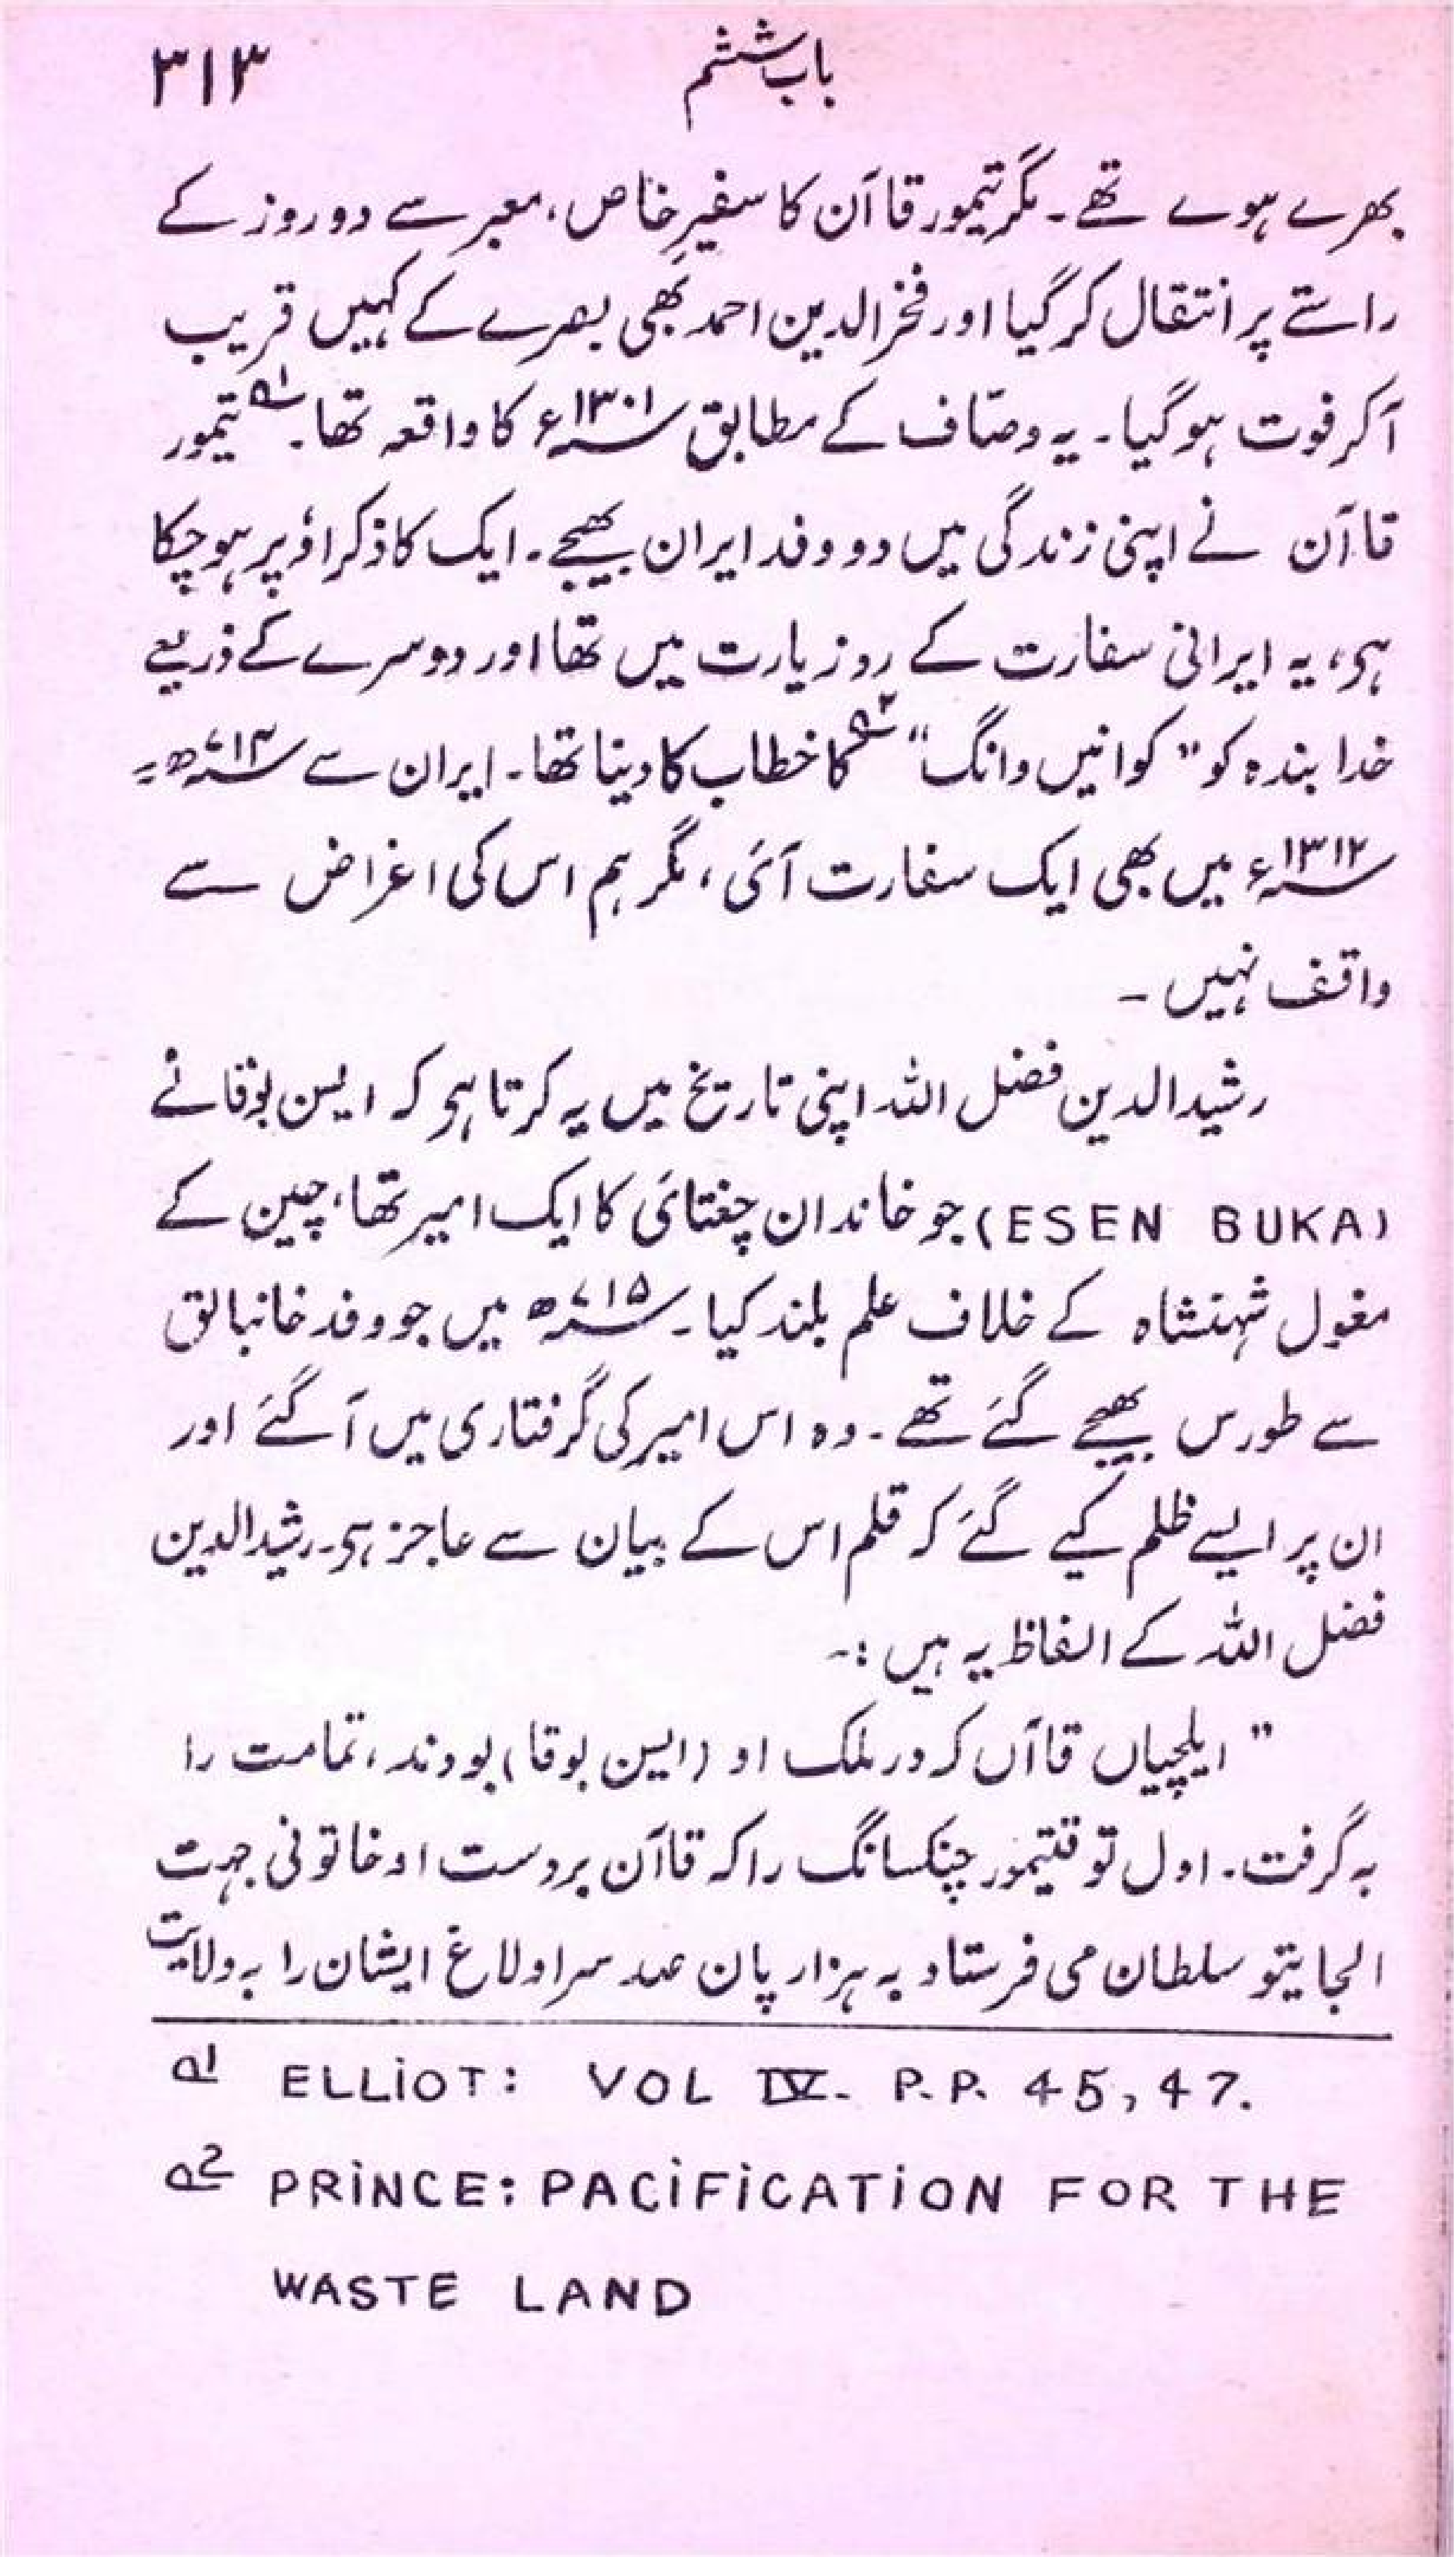 باب ششم
۳۱۳
بھرے ہوے تھے۔ مگر تیمور قاآن کا سفیرِ خاص، معبر سے دو روز کے
راستے پر انتقال کر گیا اور فخر الدین احمد بھی بصرے کے کہیں قریب
آکر فوت ہوگیا۔ یہ وصّاف کے مطابق سنہ ۱۳۰۱ء کا واقعہ تھا۔ ۱ھ تیمور
قاآن نے اپنی زندگی میں دو وفد ایران بھیجے۔ ایک کا ذکر اوٗپر ہوچکا
ہی، یہ ایرانی سفارت کے رد زیارت میں تھا اور دوسرے کے ذریعے
خدا بندہ کو ”کوانیں وانگ“ ۲ھ کا خطاب کا دینا تھا۔ ایران سے سنہ ۷۱۲ھ =
سنہ ۱۳۱۲ء میں بھی ایک سفارت آئی، مگر ہم اس کی اغراض سے
واقف نہیں۔
رشید الدین فضل اللہ اپنی تاریخ میں یہ کرتا ہی کہ ایسن بوقا نے
(ESEN BUKA) جو خاندان چغتائی کا ایک امیر تھا، چین کے
مغول شہنشاہ کے خلاف علم بلند کیا۔ سنہ ۷۱۵ھ میں جو وفد خانبالق
سے طورس بھیجے گئے تھے۔ وہ اس امیر کی گرفتاری میں آگئے اور
ان پر ایسے ظلم کیے گئے کہ قلم اس کے بیان سے عاجز ہی۔ رشید الدین
فضل اللہ کے الفاظ یہ ہیں :۔
”ایلچیاں قاآں کہ در ملک او (ایسن بوقا) بودند، تمامت را
بہ گرفت۔ اول تو قتیمور چنکسانگ را کہ قاآن بر دست او خاتونی جہت
الجایتو سلطان می فرستاد بہ ہزار پان صد سر اولاغ ایشان را بہ ولایت
۱ھ ELLiOT: VOL IV. P.P. 45, 47.
۲ھ PRiNCE: PACiFiCATiON FOR THE
WASTE LAND